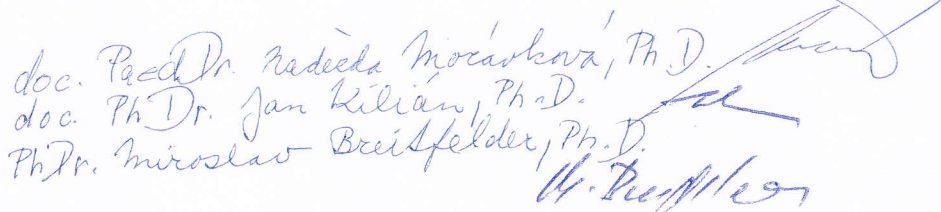 doc. PaedDr. Naděžda Morávková, Ph.D.
doc. PhDr. Jan Kilián, Ph.D.
PhDr. Miroslav Breitfelder, Ph.D.